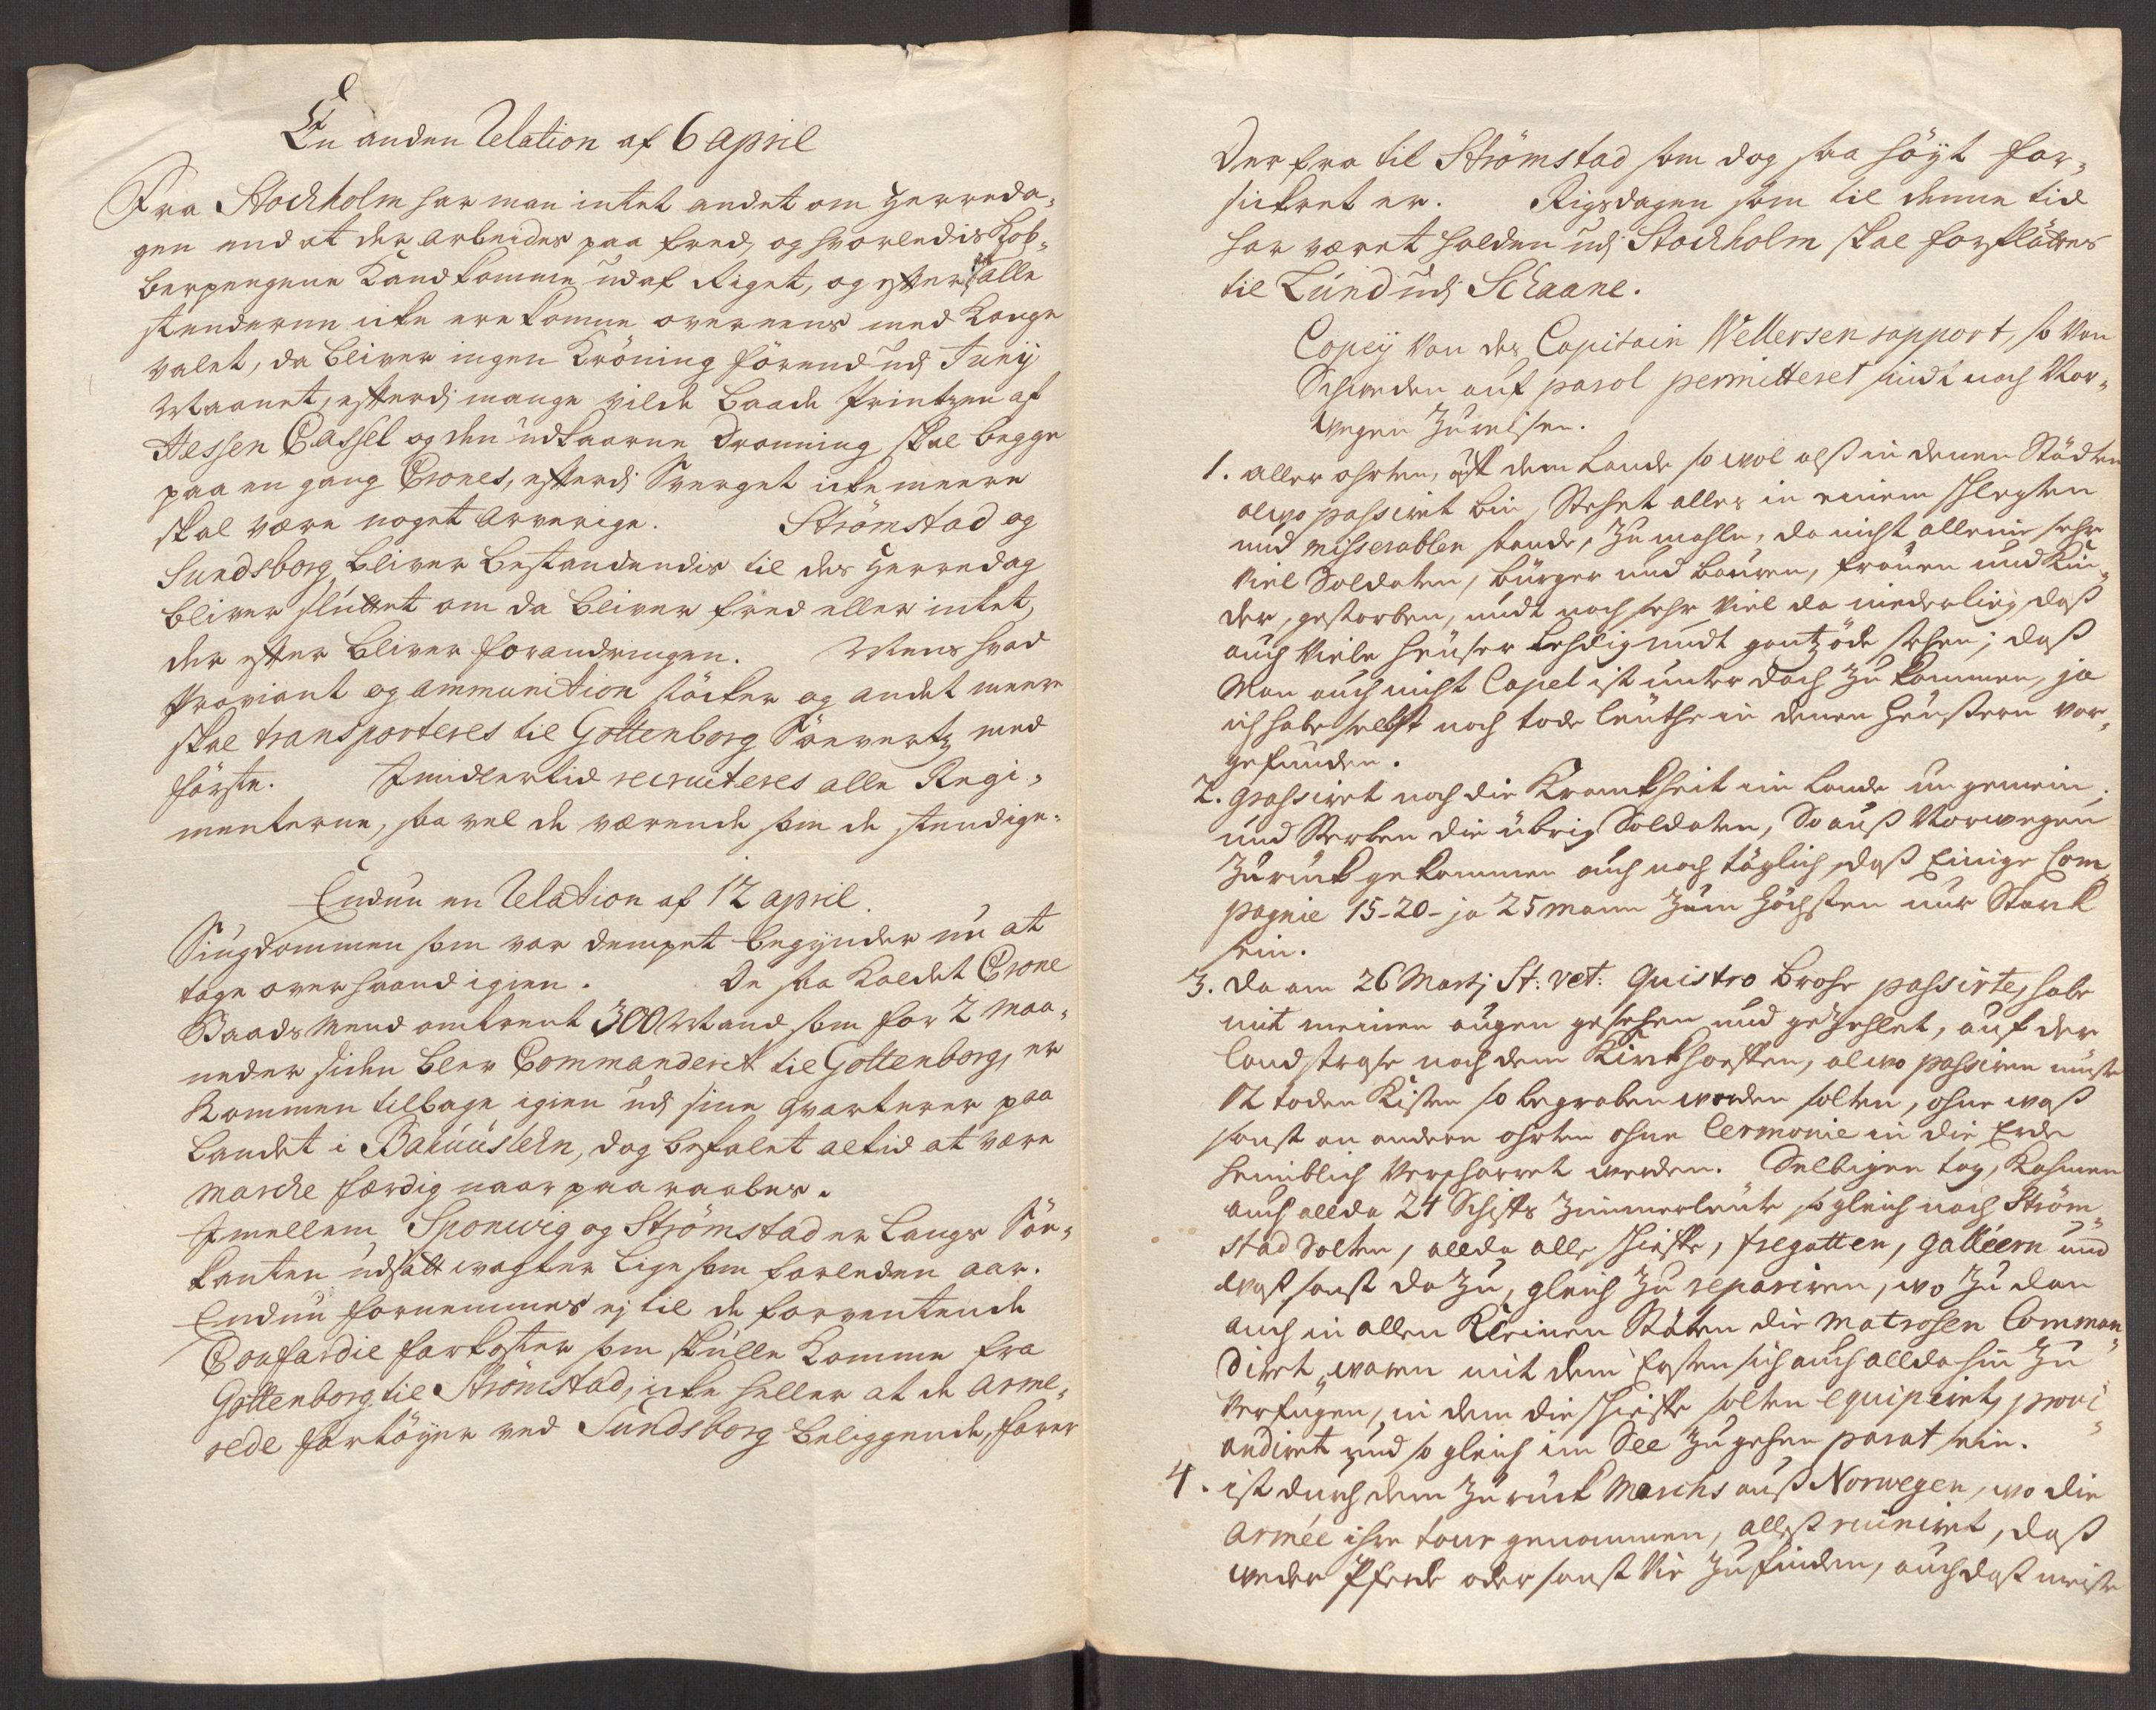 En anden Relation af 6 april
Fra Stockholm har man intet andet om Herreda-
gen end at der arbeides paa fred, og hvorledis Kob-
berpengene Kand komme udaf Riget, og efter at alle
stenderne icke ere komne overeens med Konge
valet, da bliver ingen Kröning förend udj Junij
Maanet, efterdj mange vilde baade Printzen af
Hessen Cassel og den udkaarne Dronning skal begge
paa en gang Crones, efterdj Sverget icke meere
skal være noget arverige. Strömstad og
Sundsborg bliver bestandendis til des Herredag
bliver sluttet om da bliver fred eller intet,
der efter bliver forandringen. Mens hvad
Proviant og ammunition stöcker og andet meere
skal transporteres til Gottenborg Söevertz med
förste. Imidlertid recruteres alle Regi-
menterne, saa vel de værende som de stendige.
Endnu en Relation af 12 april.
Siugdommen som var dempet begynder nu at
tage overhaand igien. De saa kaldet Crone
Baads Mend omtrent 300 Mand som for 2 maa-
neder siden blev Commanderet til Gottenborg, er
Kommen tilbage igien udj sine qvarterer paa
Landet i Bahuuslehn, dog befalet altid at være
Marche færdig naar paaraabes.
Imellem Sponwig og Strömstad er langs Söe-
kanten udsatt wagter lige som forleden aar.
Endnu fornemmes ej til de forventende
Coufardie farkoster som skulle komme fra
Gottenborg til Strömstad, icke heller at de arme-
rede fartöyer ved Sundsborg beliggende, farer
Der fra til Strömstad som dog saa höyt for-
sickret er. Rigsdagen som til denne tid
har været holden udj Stockholm skal forflöttes
til Lund udj Schaane.
Copey von des Capitain Wellersen rapport, so von
Schweden auf parol permitteret sindt nach Nor-
wegen zu reisen.
1. aller ohrten, auf dem Lande so wol alß in denen Städten
alwo passiret bin, Stehet alles in einem schlegten
und misserablen stande, zumahle, da nicht alleine sehr
viel Soldaten, bürger und bauren, frauen und Kin-
der, gestorben, undt noch sehr viel da niederligg, daß
auch viele heuser lehdig undt gantz öde stehen; daß
Man auch nicht Capel ist unter dach zu kommen, ja
ich habe selbst noch tode leuthe in denen heusern vor-
gefunden.
2. grassiret noch die Kranckheit im Lande un gemein;
und Sterben die übrig Soldaten, So auß Norwegen
zurück gekommen auch noch täglich, daß Einige Com-
pagnie 15-20- ja 25 mann zum höchsten nur Starck
sein.
3. da am 26 Martj St: vet: Quistro brohe passirte, habe
mit meinen augen gesehen und gezehlet, auf der
landstrase nach dem Kirckhoeffen, alwo passiren muste
12 toden Kisten so begraben werden solten, ohne waß
sonst an andern ohrten ohne Cermonie in die Erde
heimblich verscharret werden. Selbigen tag, Kahmen
auch allda 24 Schiffs Zimmerleute so gleich nach Ström-
stad Solten, allda alle schieffe, fregatten, Galléern und
waß sonst da zu, gleich zu repariren, wo zu dan
auch in allen Kleinen Stäten die Matrosen Comman-
diret waren mit dem Ersten sich auch allda hin zu
verfügen, in dem die schieffe solten equipiret, provi-
andiret und so gleich im See zu gehen parat sein.
4. ist durch dem zurück Marchs auß Norwegen, wo die
Armée ihre tour genommen, alleß ruiniret, daß
weder Pferde oder sonst Vie zu finden, auch daß meiste